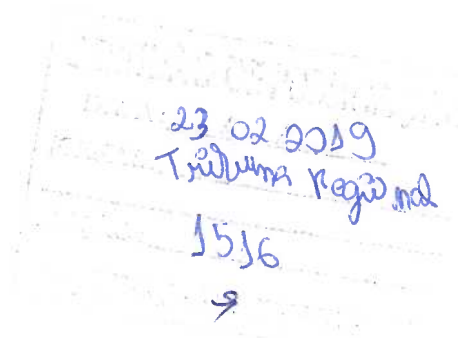 23 02 2019
Tribuna Regional
1516
9